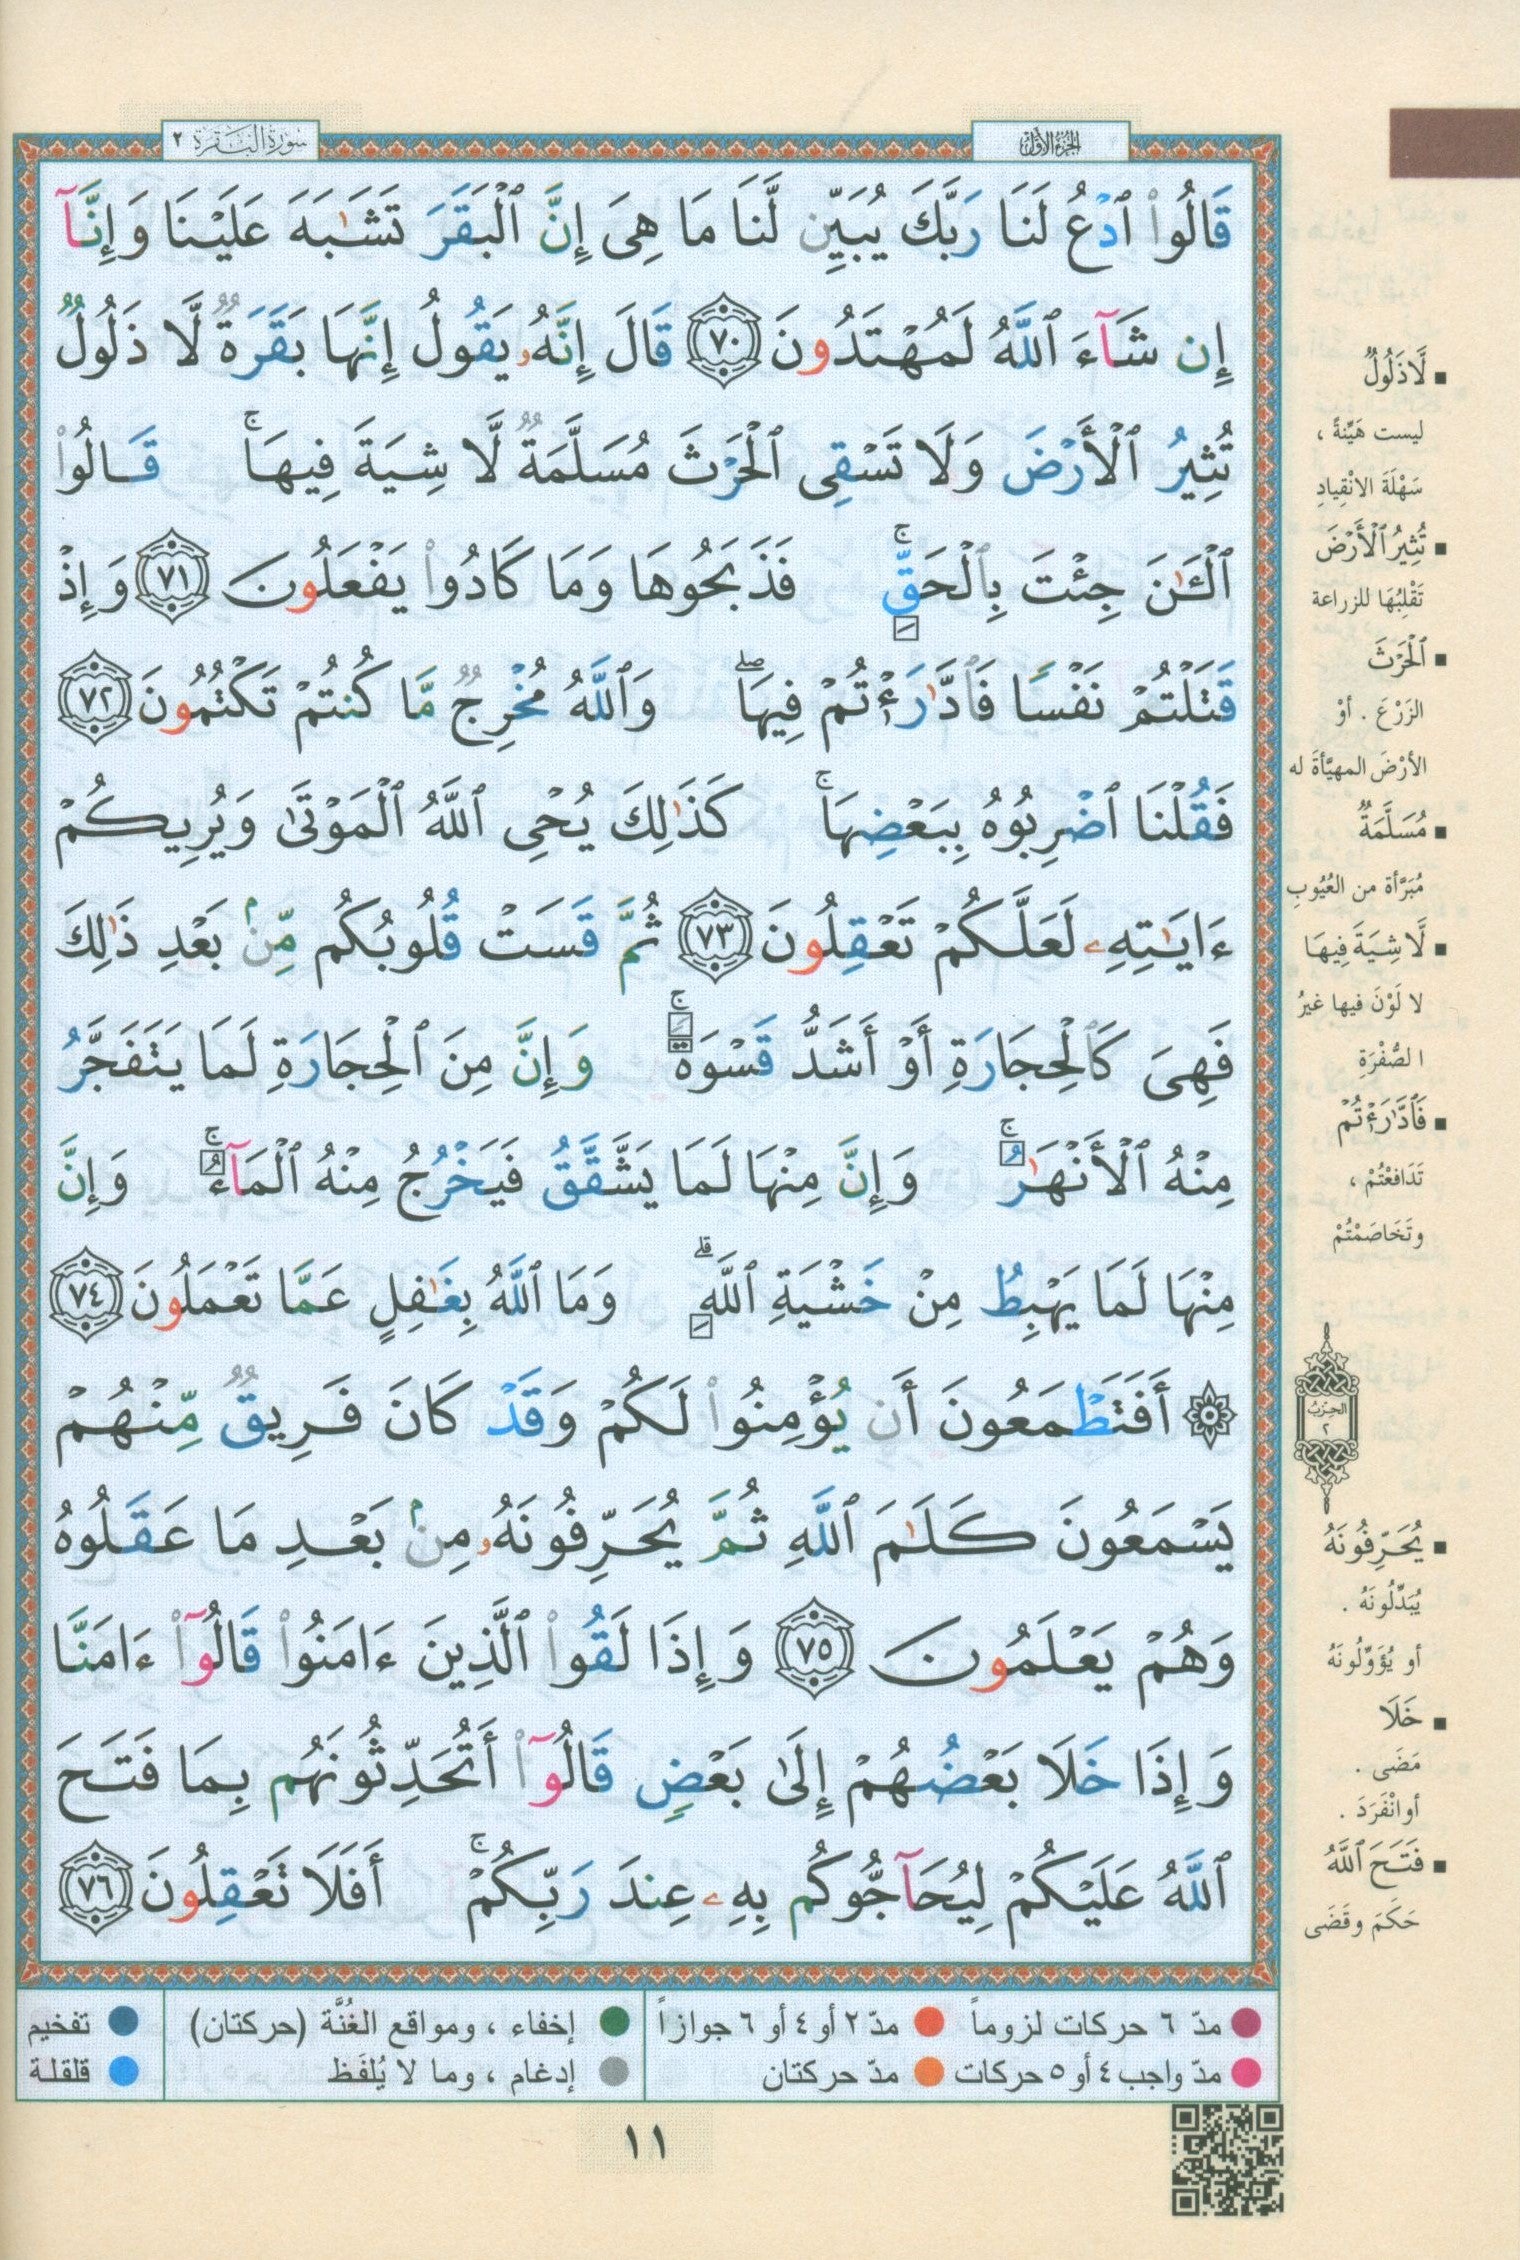 الجزء الأول
سورة البقرة ٢
قَالُوا۟ ٱدْعُ لَنَا رَبَّكَ يُبَيِّن لَّنَا مَا هِىَ إِنَّ ٱلْبَقَرَ تَشَٰبَهَ عَلَيْنَا وَإِنَّآ
إِن شَآءَ ٱللَّهُ لَمُهْتَدُونَ ٧٠ قَالَ إِنَّهُۥ يَقُولُ إِنَّهَا بَقَرَةٌ لَّا ذَلُولٌ
تُثِيرُ ٱلْأَرْضَ وَلَا تَسْقِى ٱلْحَرْثَ مُسَلَّمَةٌ لَّا شِيَةَ فِيهَا ۚ قَالُوا۟
ٱلْـَٰٔنَ جِئْتَ بِٱلْحَقِّ ۚ فَذَبَحُوهَا وَمَا كَادُوا۟ يَفْعَلُونَ ٧١ وَإِذْ
قَتَلْتُمْ نَفْسًا فَٱدَّٰرَْٰٔتُمْ فِيهَا ۖ وَٱللَّهُ مُخْرِجٌ مَّا كُنتُمْ تَكْتُمُونَ ٧٢
فَقُلْنَا ٱضْرِبُوهُ بِبَعْضِهَا ۚ كَذَٰلِكَ يُحْىِ ٱللَّهُ ٱلْمَوْتَىٰ وَيُرِيكُمْ
ءَايَٰتِهِۦ لَعَلَّكُمْ تَعْقِلُونَ ٧٣ ثُمَّ قَسَتْ قُلُوبُكُم مِّنۢ بَعْدِ ذَٰلِكَ
فَهِىَ كَٱلْحِجَارَةِ أَوْ أَشَدُّ قَسْوَةً ۚ وَإِنَّ مِنَ ٱلْحِجَارَةِ لَمَا يَتَفَجَّرُ
مِنْهُ ٱلْأَنْهَٰرُ ۚ وَإِنَّ مِنْهَا لَمَا يَشَّقَّقُ فَيَخْرُجُ مِنْهُ ٱلْمَآءُ ۚ وَإِنَّ
مِنْهَا لَمَا يَهْبِطُ مِنْ خَشْيَةِ ٱللَّهِ ۗ وَمَا ٱللَّهُ بِغَٰفِلٍ عَمَّا تَعْمَلُونَ ٧٤
۞ أَفَتَطْمَعُونَ أَن يُؤْمِنُوا۟ لَكُمْ وَقَدْ كَانَ فَرِيقٌ مِّنْهُمْ
يَسْمَعُونَ كَلَٰمَ ٱللَّهِ ثُمَّ يُحَرِّفُونَهُۥ مِنۢ بَعْدِ مَا عَقَلُوهُ
وَهُمْ يَعْلَمُونَ ٧٥ وَإِذَا لَقُوا۟ ٱلَّذِينَ ءَامَنُوا۟ قَالُوٓا۟ ءَامَنَّا
وَإِذَا خَلَا بَعْضُهُمْ إِلَىٰ بَعْضٍ قَالُوٓا۟ أَتُحَدِّثُونَهُم بِمَا فَتَحَ
ٱللَّهُ عَلَيْكُمْ لِيُحَآجُّوكُم بِهِۦ عِندَ رَبِّكُمْ ۚ أَفَلَا تَعْقِلُونَ ٧٦
▪ لَّا ذَلُولٌ
ليست هَيِّنةً ،
سَهْلَةَ الانْقِيادِ
▪ تُثِيرُ ٱلْأَرْضَ
تَقْلِبُهَا للزراعة
▪ ٱلْحَرْثَ
الزَرْعَ . أوْ
الأرْضَ المهيَّأةَ له
▪ مُسَلَّمَةٌ
مُبَرَّأة من العُيُوبِ
▪ لَّا شِيَةَ فِيهَا
لا لَوْنَ فيها غيرُ
الصُّفْرَةِ
▪ فَٱدَّٰرَْٰٔتُمْ
تَدَافعْتُمْ ،
وتَخَاصَمْتُمْ
الحزب
٢
▪ يُحَرِّفُونَهُ
يُبَدِّلُونَهُ .
أو يُؤَوِّلُونَهُ
▪ خَلَا
مَضَى .
أو انْفَرَدَ .
▪ فَتَحَ ٱللَّهُ
حَكَمَ وقَضَى
مدّ ٦ حركات لزوماً مدّ ٢ أو ٤ أو ٦ جوازاً إخفاء ، ومواقع الغُنَّة (حركتان) تفخيم
مدّ واجب ٤ أو ٥ حركات مدّ حركتان إدغام ، وما لا يُلفَظ قلقلة
١١